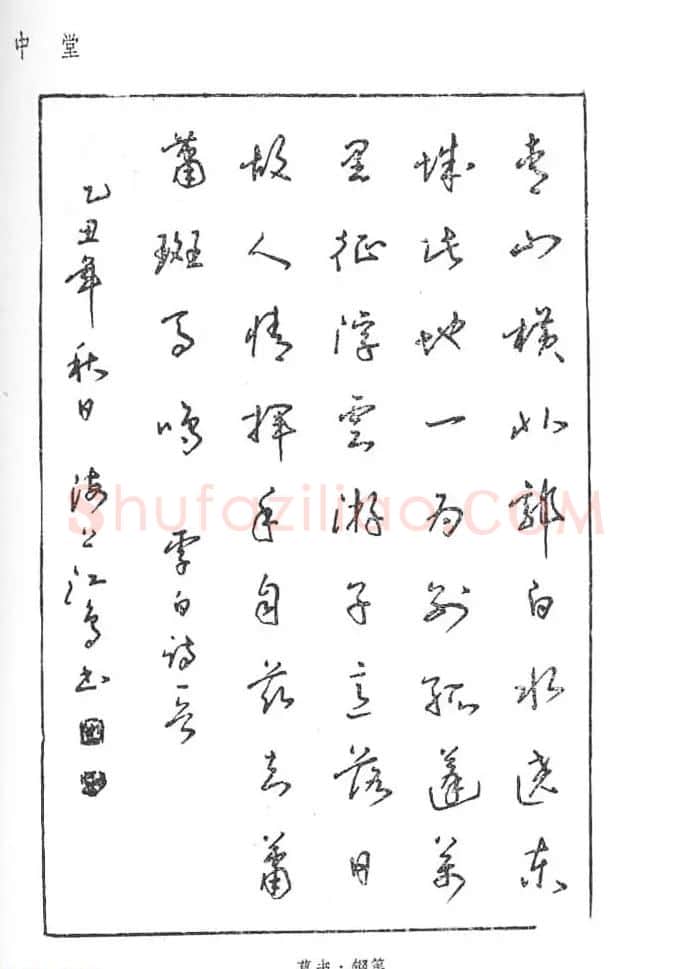 中 堂
青山橫北郭白水遶東
城此地一为别孤蓬萬
里征浮雲游子意落日
故人情揮手自茲去蕭
蕭班马鸣 李白詩一首
乙丑年秋日 海上江鸟书
Shufaziliao.COM
草书·钢笔